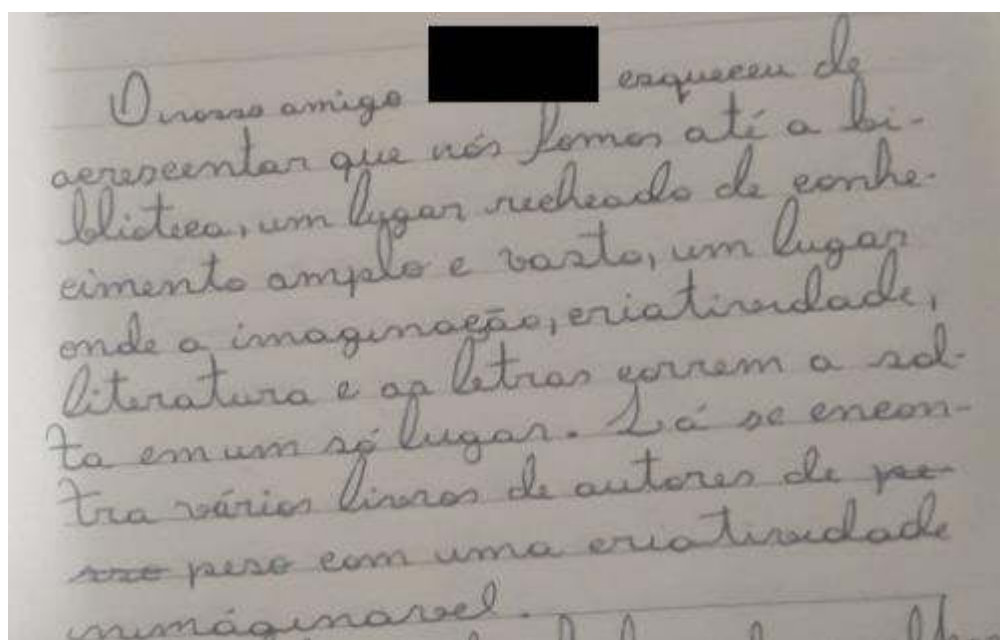 O nosso amigo esqueceu de
acrescentar que nós fomos até a bi-
blioteca, um lugar recheado de conhe-
cimento amplo e vasto, um lugar
onde a imaginação, criatividade,
literatura e as letras correm a sol-
ta em um só lugar. Lá se encon-
tra vários livros de autores de pe-
peso com uma criatividade
inimáginavel.